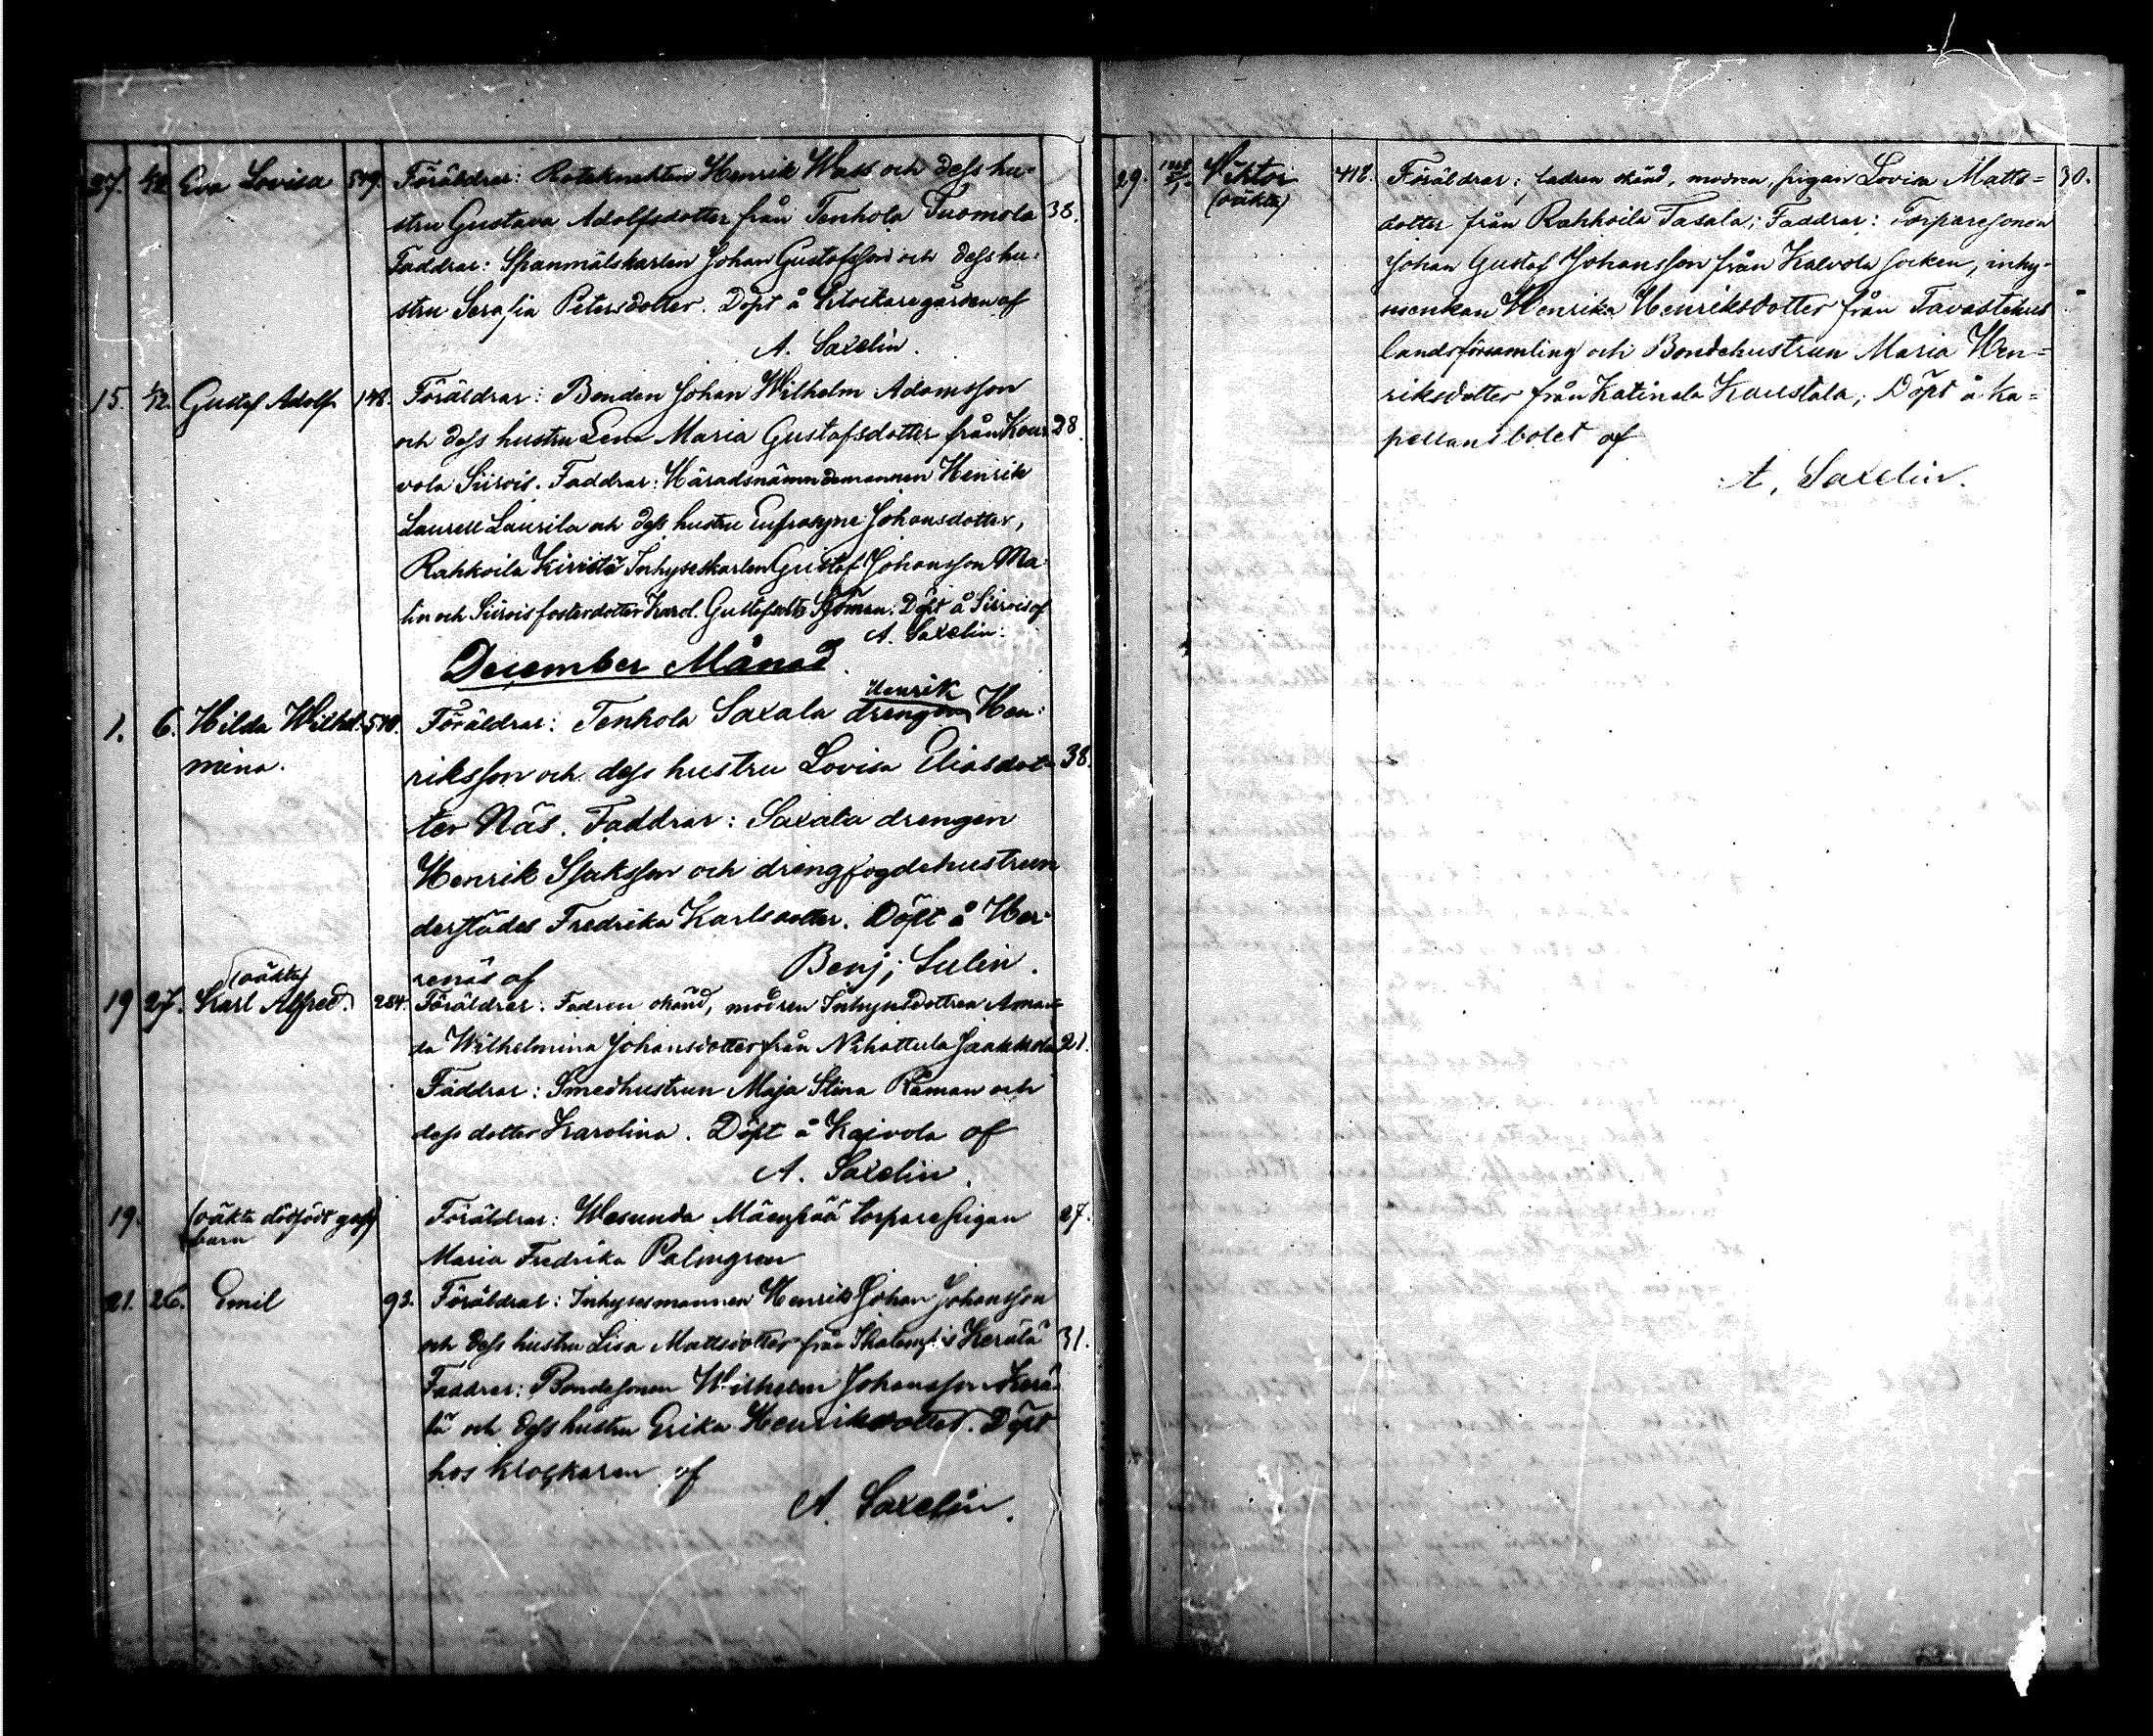 27. 1/12 Eva Lovisa 579. Föräldrar: Roteknekten Henrik Wass och dess hu-
stru Gustava Adolfsdotter från Tenhola Tuomola 38.
Faddrar: Spanmålskarlen Johan Gustafsson och dess hu-
stru Serafia Petersdotter. Döpt å Klockaregården af
A. Saxelin.
15. 1/12. Gustaf Adolf 148. Föräldrar: Bonden Johan Wilhelm Adamsson
och dess hustru Lena Maria Gustafsdotter från Kou- 28.
vola Siirois. Faddrar: Häradsnämndemannen Henrik
Laurell Laurila och dess hustru Eufrosyne Johansdotter,
Rahkoila Kiristö Inhyseskarlen Gustaf Johansson Ma-
lin och Siirois fosterdotter Karol. Gustafsdtr Sjöman. Döpt å Siirois af
A. Saxelin.
December Månad
Henrik
1. 6. Hilda Wilhel- 570. Föräldrar: Tenhola Saxala drengen Hen-
mina. riksson och dess hustru Lovisa Eliasdot- 38.
ter Näs. Faddrar: Saxala drengen
Henrik Isaksson och drengfogdehustrun
derstädes Fredrika Karlsdotter. Döpt å Her-
renäs af Benj; Sulin.
(oäkta)
19 27. Karl Alfred. 284. Föräldrar: Fadren okänd, modren Inhysesdottren Aman-
da Wilhelmina Johansdotter från Nihattula Jaakkola 21.
Faddrar: Smedhustrun Maja Stina Råman och
dess dotter Karolina. Döpt å Kaivola af
A. Saxelin.
19. (oäkta dödfödt goss) Föräldrar: Wesunda Mäenpää torparepigan 27.
barn Maria Fredrika Palmgren
21. 26. Emil 93. Föräldrar: Inhysesmannen Henrik Johan Johansson
och dess hustru Lisa Mattsdotter från Kerälä 31.
Faddrar: Bondesonen Wilhelm Johansson Kerä-
lä och dess hustru Erika Henriksdotter. Döpt
hos klockaren af
A. Saxelin.
29. Viktor 418. Föräldrar; fadren okänd, modren, pigan Lovisa Matts= 30.
(oäkta) dotter från Rahkoila Tasala; Faddrar: Torparesonen
Johan Gustaf Johansson från Kalvola socken, inhy-
menkan Henrika Henriksdotter från Tavastehus
landsförsamling och Bondehustrun Maria Hen=
riksdotter från Katinala Koustala; Döpt å Ka=
pellansbolet af
A. Saxelin.